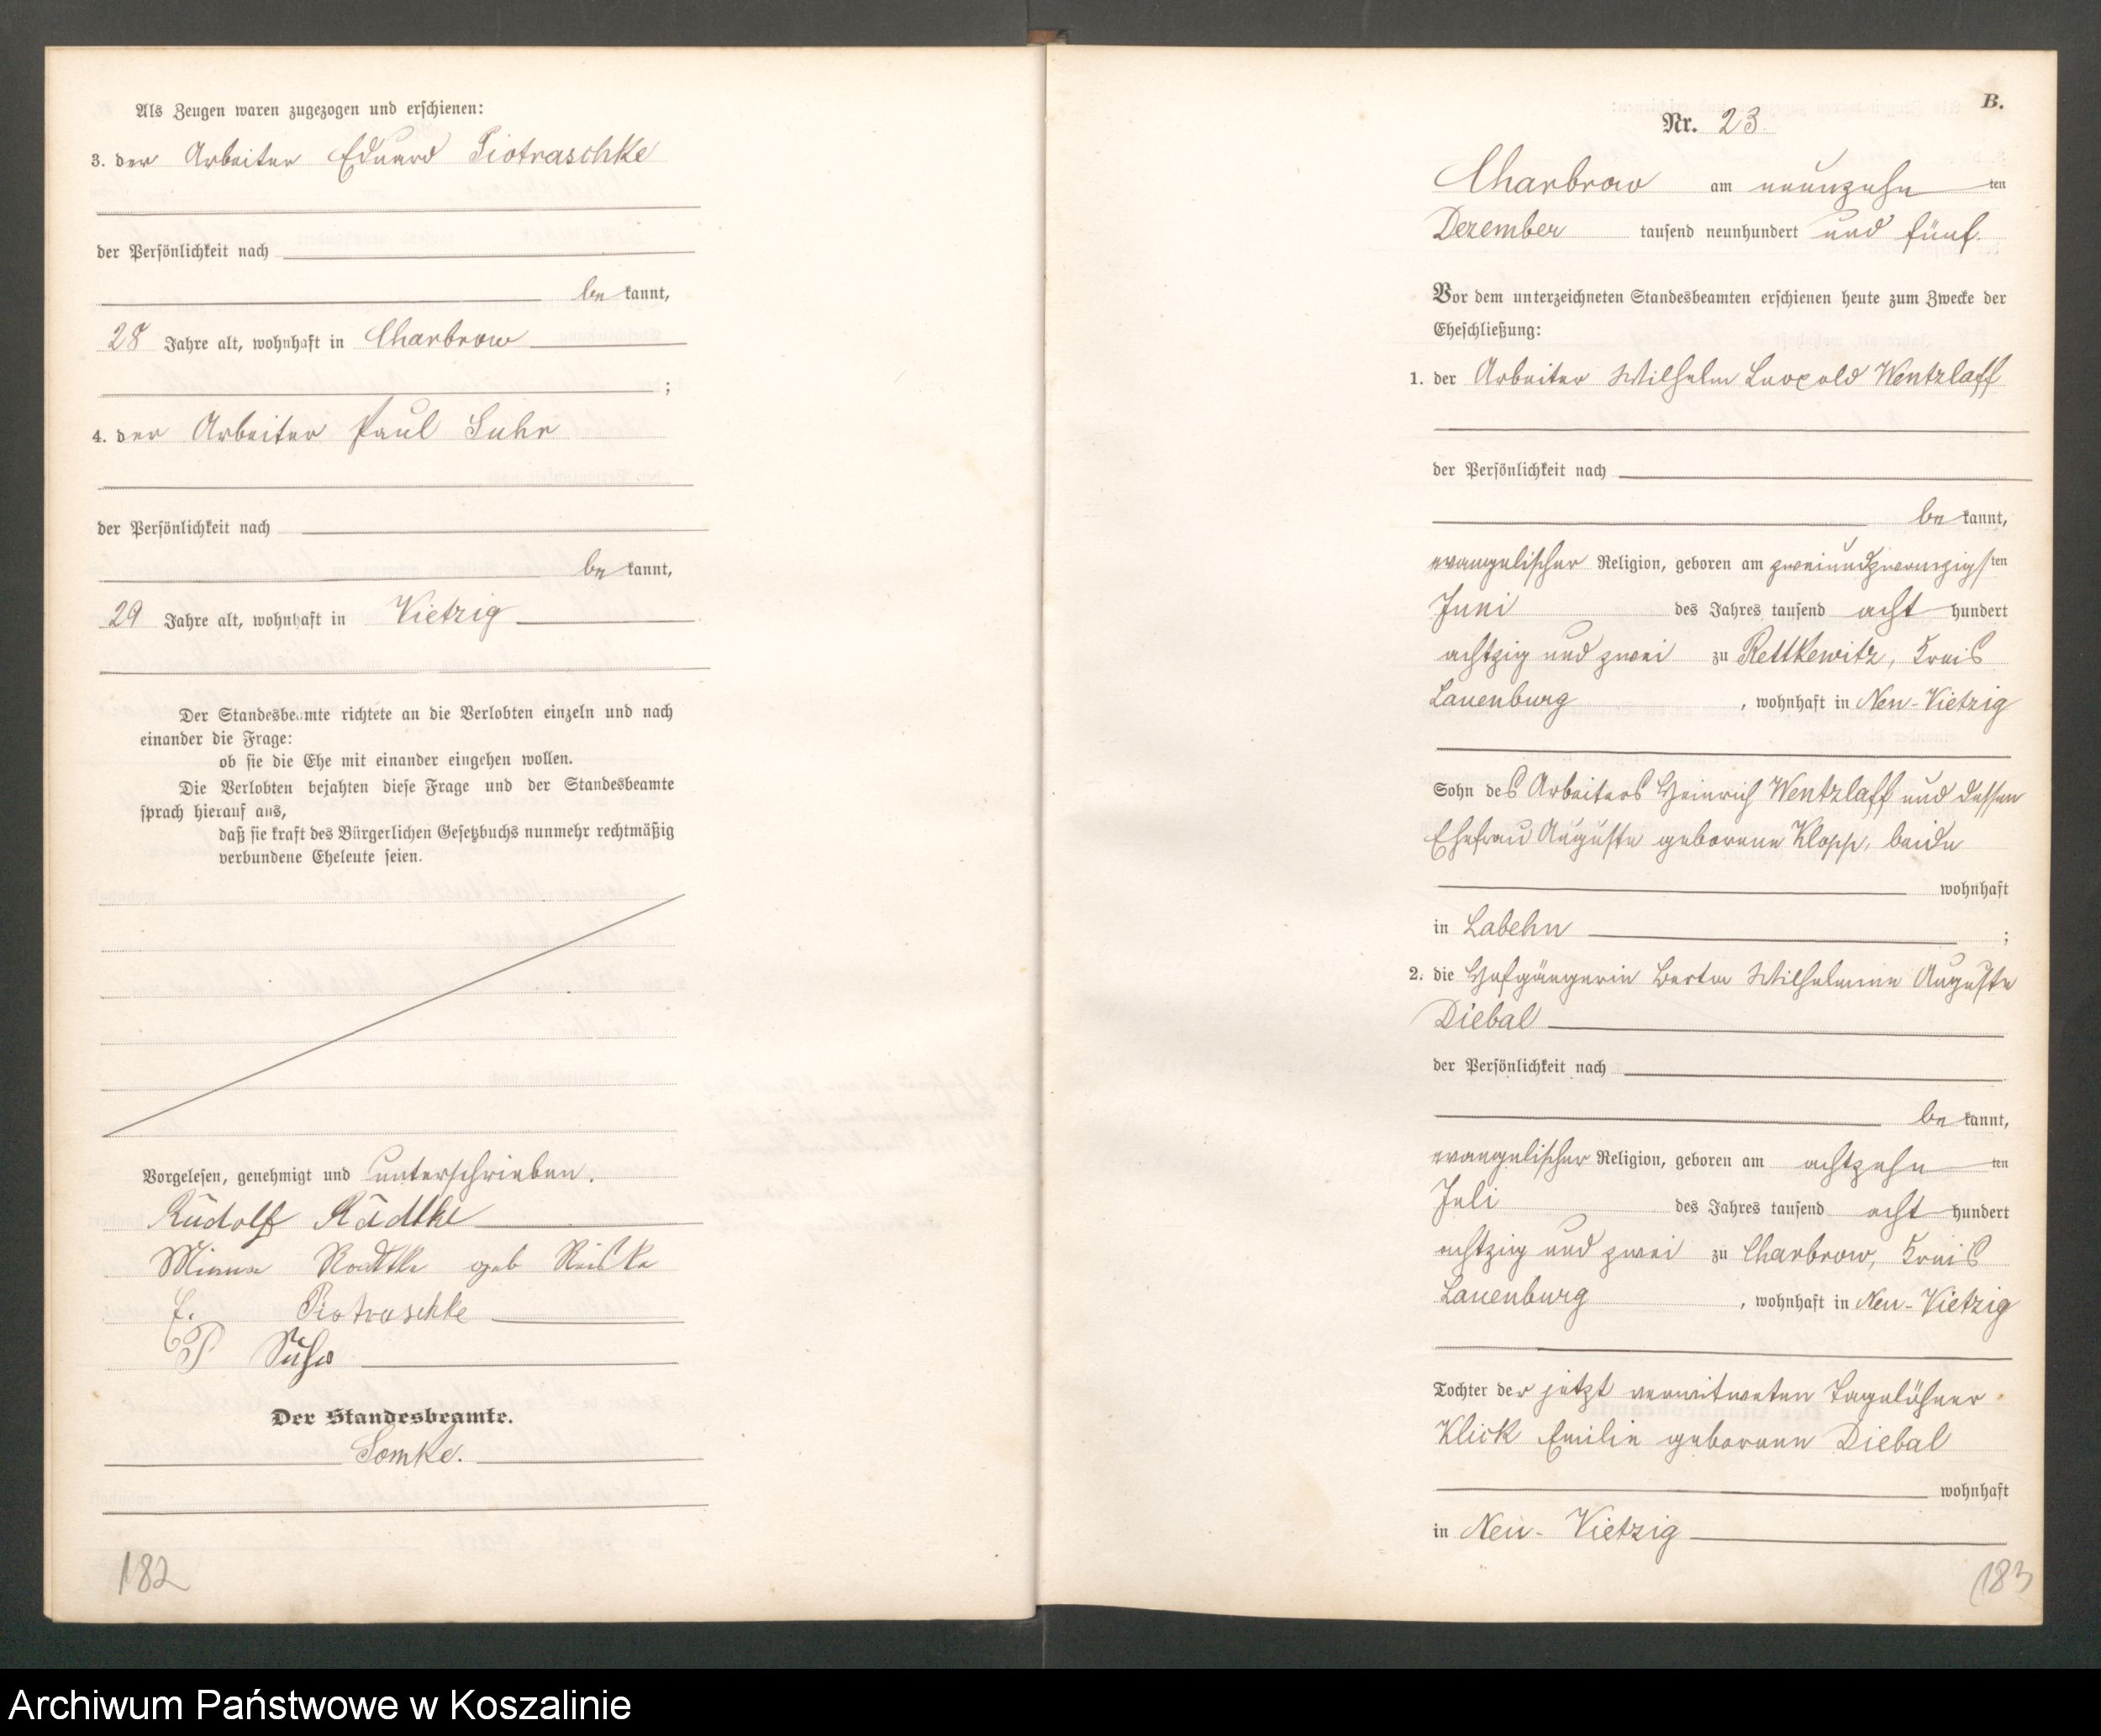 Als Zeugen waren zugezogen und erschienen:
3. der Arbeiter Eduard Piotraschke
der Persönlichkeit nach
be kannt,
28 Jahre alt, wohnhaft in Charbrow
;
4. der Arbeiter Paul Suhr
der Persönlichkeit nach
be kannt,
29 Jahre alt, wohnhaft in Vietzig
Der Standesbeamte richtete an die Verlobten einzeln und nach
einander die Frage:
ob sie die Ehe mit einander eingehen wollen.
Die Verlobten bejahten diese Frage und der Standesbeamte
sprach hierauf aus,
daß sie kraft des Bürgerlichen Gesetzbuchs nunmehr rechtmäßig
verbundene Eheleute seien.
Vorgelesen, genehmigt und unterschrieben.
Rudolf Radtke
Minna Radtke geb Reiske
E. Piotraschke
P Suhr
Der Standesbeamte.
Somke.
182
B.
Nr. 23.
Charbrow am neunzehn ten
Dezember tausend neunhundert und fünf.
Vor dem unterzeichneten Standesbeamten erschienen heute zum Zwecke der
Eheschließung:
1. der Arbeiter Wilhelm Leopold Wentzlaff
der Persönlichkeit nach
be kannt,
evangelischer Religion, geboren am zweiundzwanzigs ten
Juni des Jahres tausend acht hundert
achtzig und zwei zu Rettkewitz, Kreis
Lauenburg , wohnhaft in Neu-Vietzig
Sohn des Arbeiters Heinrich Wentzlaff und dessen
Ehefrau Auguste geborene Klopp, beide
wohnhaft
in Labehn ;
2. die Hofgängerin Berta Wilhelmine Auguste
Diebal
der Persönlichkeit nach
be kannt,
evangelischer Religion, geboren am achtzehn ten
Juli des Jahres tausend acht hundert
achtzig und zwei zu Charbrow, Kreis
Lauenburg , wohnhaft in Neu-Vietzig
Tochter der jetzt verwitweten Tagelöhner
Klick Emilie geborenen Diebal
wohnhaft
in Neu-Vietzig
183
Archiwum Państwowe w Koszalinie